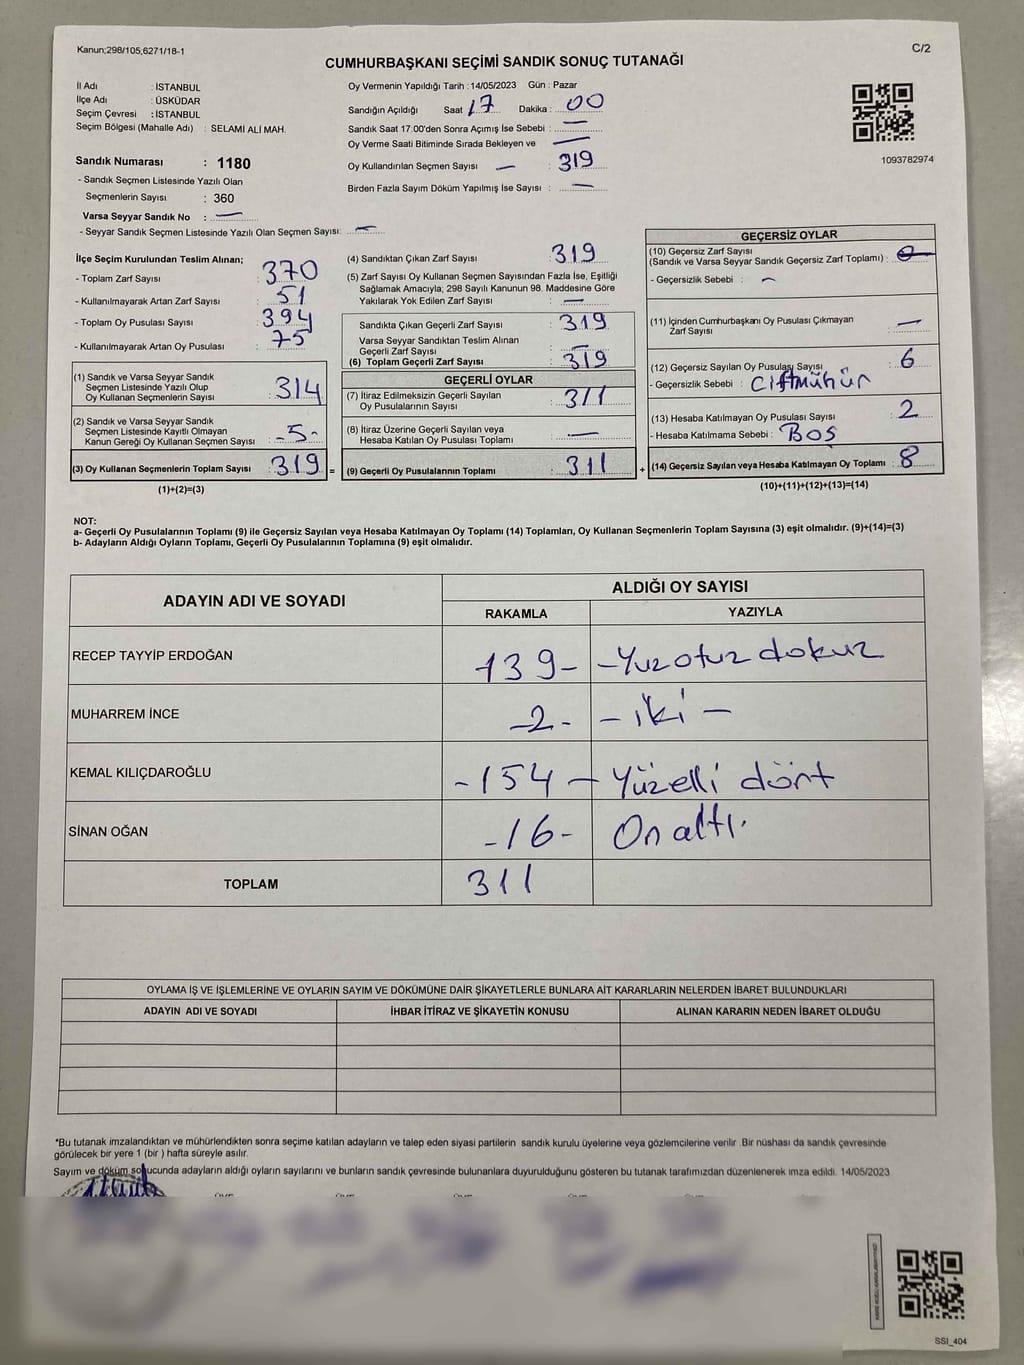 Kanun;298/105,6271/18-1
C/2
CUMHURBAŞKANI SEÇİMİ SANDIK SONUÇ TUTANAĞI
İl Adı : İSTANBUL
İlçe Adı : ÜSKÜDAR
Seçim Çevresi : İSTANBUL
Seçim Bölgesi (Mahalle Adı) : SELAMİ ALİ MAH.
Sandık Numarası : 1180
- Sandık Seçmen Listesinde Yazılı Olan
Seçmenlerin Sayısı : 360
Varsa Seyyar Sandık No : —
- Seyyar Sandık Seçmen Listesinde Yazılı Olan Seçmen Sayısı: —
Oy Vermenin Yapıldığı Tarih : 14/05/2023 Gün : Pazar
Sandığın Açıldığı Saat 17 Dakika : 00
Sandık Saat 17.00'den Sonra Açımış İse Sebebi : —
Oy Verme Saati Bitiminde Sırada Bekleyen ve —
Oy Kullandırılan Seçmen Sayısı — : 319
Birden Fazla Sayım Döküm Yapılmış İse Sayısı : —
1093782974
İlçe Seçim Kurulundan Teslim Alınan;
- Toplam Zarf Sayısı : 370
- Kullanılmayarak Artan Zarf Sayısı : 51
- Toplam Oy Pusulası Sayısı : 394
- Kullanılmayarak Artan Oy Pusulası : 75
(1) Sandık ve Varsa Seyyar Sandık
Seçmen Listesinde Yazılı Olup
Oy Kullanan Seçmenlerin Sayısı : 314
(2) Sandık ve Varsa Seyyar Sandık
Seçmen Listesinde Kayıtlı Olmayan
Kanun Gereği Oy Kullanan Seçmen Sayısı : -5-
(3) Oy Kullanan Seçmenlerin Toplam Sayısı : 319 =
(1)+(2)=(3)
(4) Sandıktan Çıkan Zarf Sayısı : 319
(5) Zarf Sayısı Oy Kullanan Seçmen Sayısından Fazla İse, Eşitliği
Sağlamak Amacıyla; 298 Sayılı Kanunun 98. Maddesine Göre
Yakılarak Yok Edilen Zarf Sayısı : —
Sandıkta Çıkan Geçerli Zarf Sayısı : 319
Varsa Seyyar Sandıktan Teslim Alınan
Geçerli Zarf Sayısı : —
(6) Toplam Geçerli Zarf Sayısı : 319
GEÇERLİ OYLAR
(7) İtiraz Edilmeksizin Geçerli Sayılan
Oy Pusulalarının Sayısı : 311
(8) İtiraz Üzerine Geçerli Sayılan veya
Hesaba Katılan Oy Pusulası Toplamı : —
(9) Geçerli Oy Pusulalarının Toplamı : 311 +
GEÇERSİZ OYLAR
(10) Geçersiz Zarf Sayısı
(Sandık ve Varsa Seyyar Sandık Geçersiz Zarf Toplamı) :
- Geçersizlik Sebebi : —
(11) İçinden Cumhurbaşkanı Oy Pusulası Çıkmayan
Zarf Sayısı : —
(12) Geçersiz Sayılan Oy Pusulası Sayısı : 6
- Geçersizlik Sebebi : Çiftmühür
(13) Hesaba Katılmayan Oy Pusulası Sayısı : 2
- Hesaba Katılmama Sebebi : BOŞ
(14) Geçersiz Sayılan veya Hesaba Katılmayan Oy Toplamı : 8
(10)+(11)+(12)+(13)=(14)
NOT:
a- Geçerli Oy Pusulalarının Toplamı (9) ile Geçersiz Sayılan veya Hesaba Katılmayan Oy Toplamı (14) Toplamları, Oy Kullanan Seçmenlerin Toplam Sayısına (3) eşit olmalıdır. (9)+(14)=(3)
b- Adayların Aldığı Oyların Toplamı, Geçerli Oy Pusulalarının Toplamına (9) eşit olmalıdır.
ADAYIN ADI VE SOYADI
ALDIĞI OY SAYISI
RAKAMLA YAZIYLA
RECEP TAYYİP ERDOĞAN 139- -Yuzotuz dokuz
MUHARREM İNCE -2- - iki -
KEMAL KILIÇDAROĞLU -154- Yüzelli dört
SİNAN OĞAN -16- On altı.
TOPLAM 311
OYLAMA İŞ VE İŞLEMLERİNE VE OYLARIN SAYIM VE DÖKÜMÜNE DAİR ŞİKAYETLERLE BUNLARA AİT KARARLARIN NELERDEN İBARET BULUNDUKLARI
ADAYIN ADI VE SOYADI İHBAR İTİRAZ VE ŞİKAYETİN KONUSU ALINAN KARARIN NEDEN İBARET OLDUĞU
*Bu tutanak imzalandıktan ve mühürlendikten sonra seçime katılan adayların ve talep eden siyasi partilerin sandık kurulu üyelerine veya gözlemcilerine verilir .Bir nüshası da sandık çevresinde
görülecek bir yere 1 (bir ) hafta süreyle asılır.
Sayım ve döküm sonucunda adayların aldığı oyların sayılarını ve bunların sandık çevresinde bulunanlara duyurulduğunu gösteren bu tutanak tarafımızdan düzenlenerek imza edildi. 14/05/2023
SSI_404